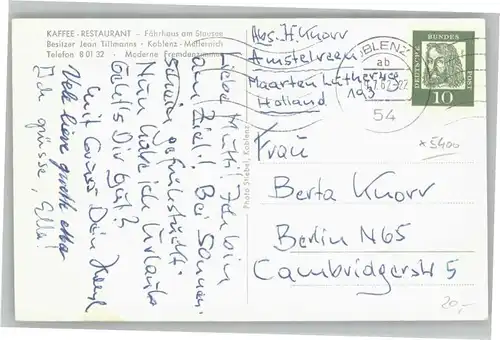 KAFFEE - RESTAURANT - Fährhaus am Stausee
Besitzer Jean Tillmanns · Koblenz - Metternich
Telefon 8 01 32 · Moderne Fremdenzimmer
Abs. H. Knorr
Amstelveen
Maarten Lutherweg
193
Holland
Liebe Mutti! Ich bin
am Ziel! Bei Sonnen-
schein gefrühstückt.
Nun habe ich Urlaub.
Geht's Dir gut?
Mit Gruss Dein
Ich grüsse, Ella!
Photo Stiebel, Koblenz
KOBLENZ
ab
54
DEUTSCHE BUNDESPOST
10
x 5400
Frau
Berta Knorr
Berlin N65
Cambridgerstr 5
20,-